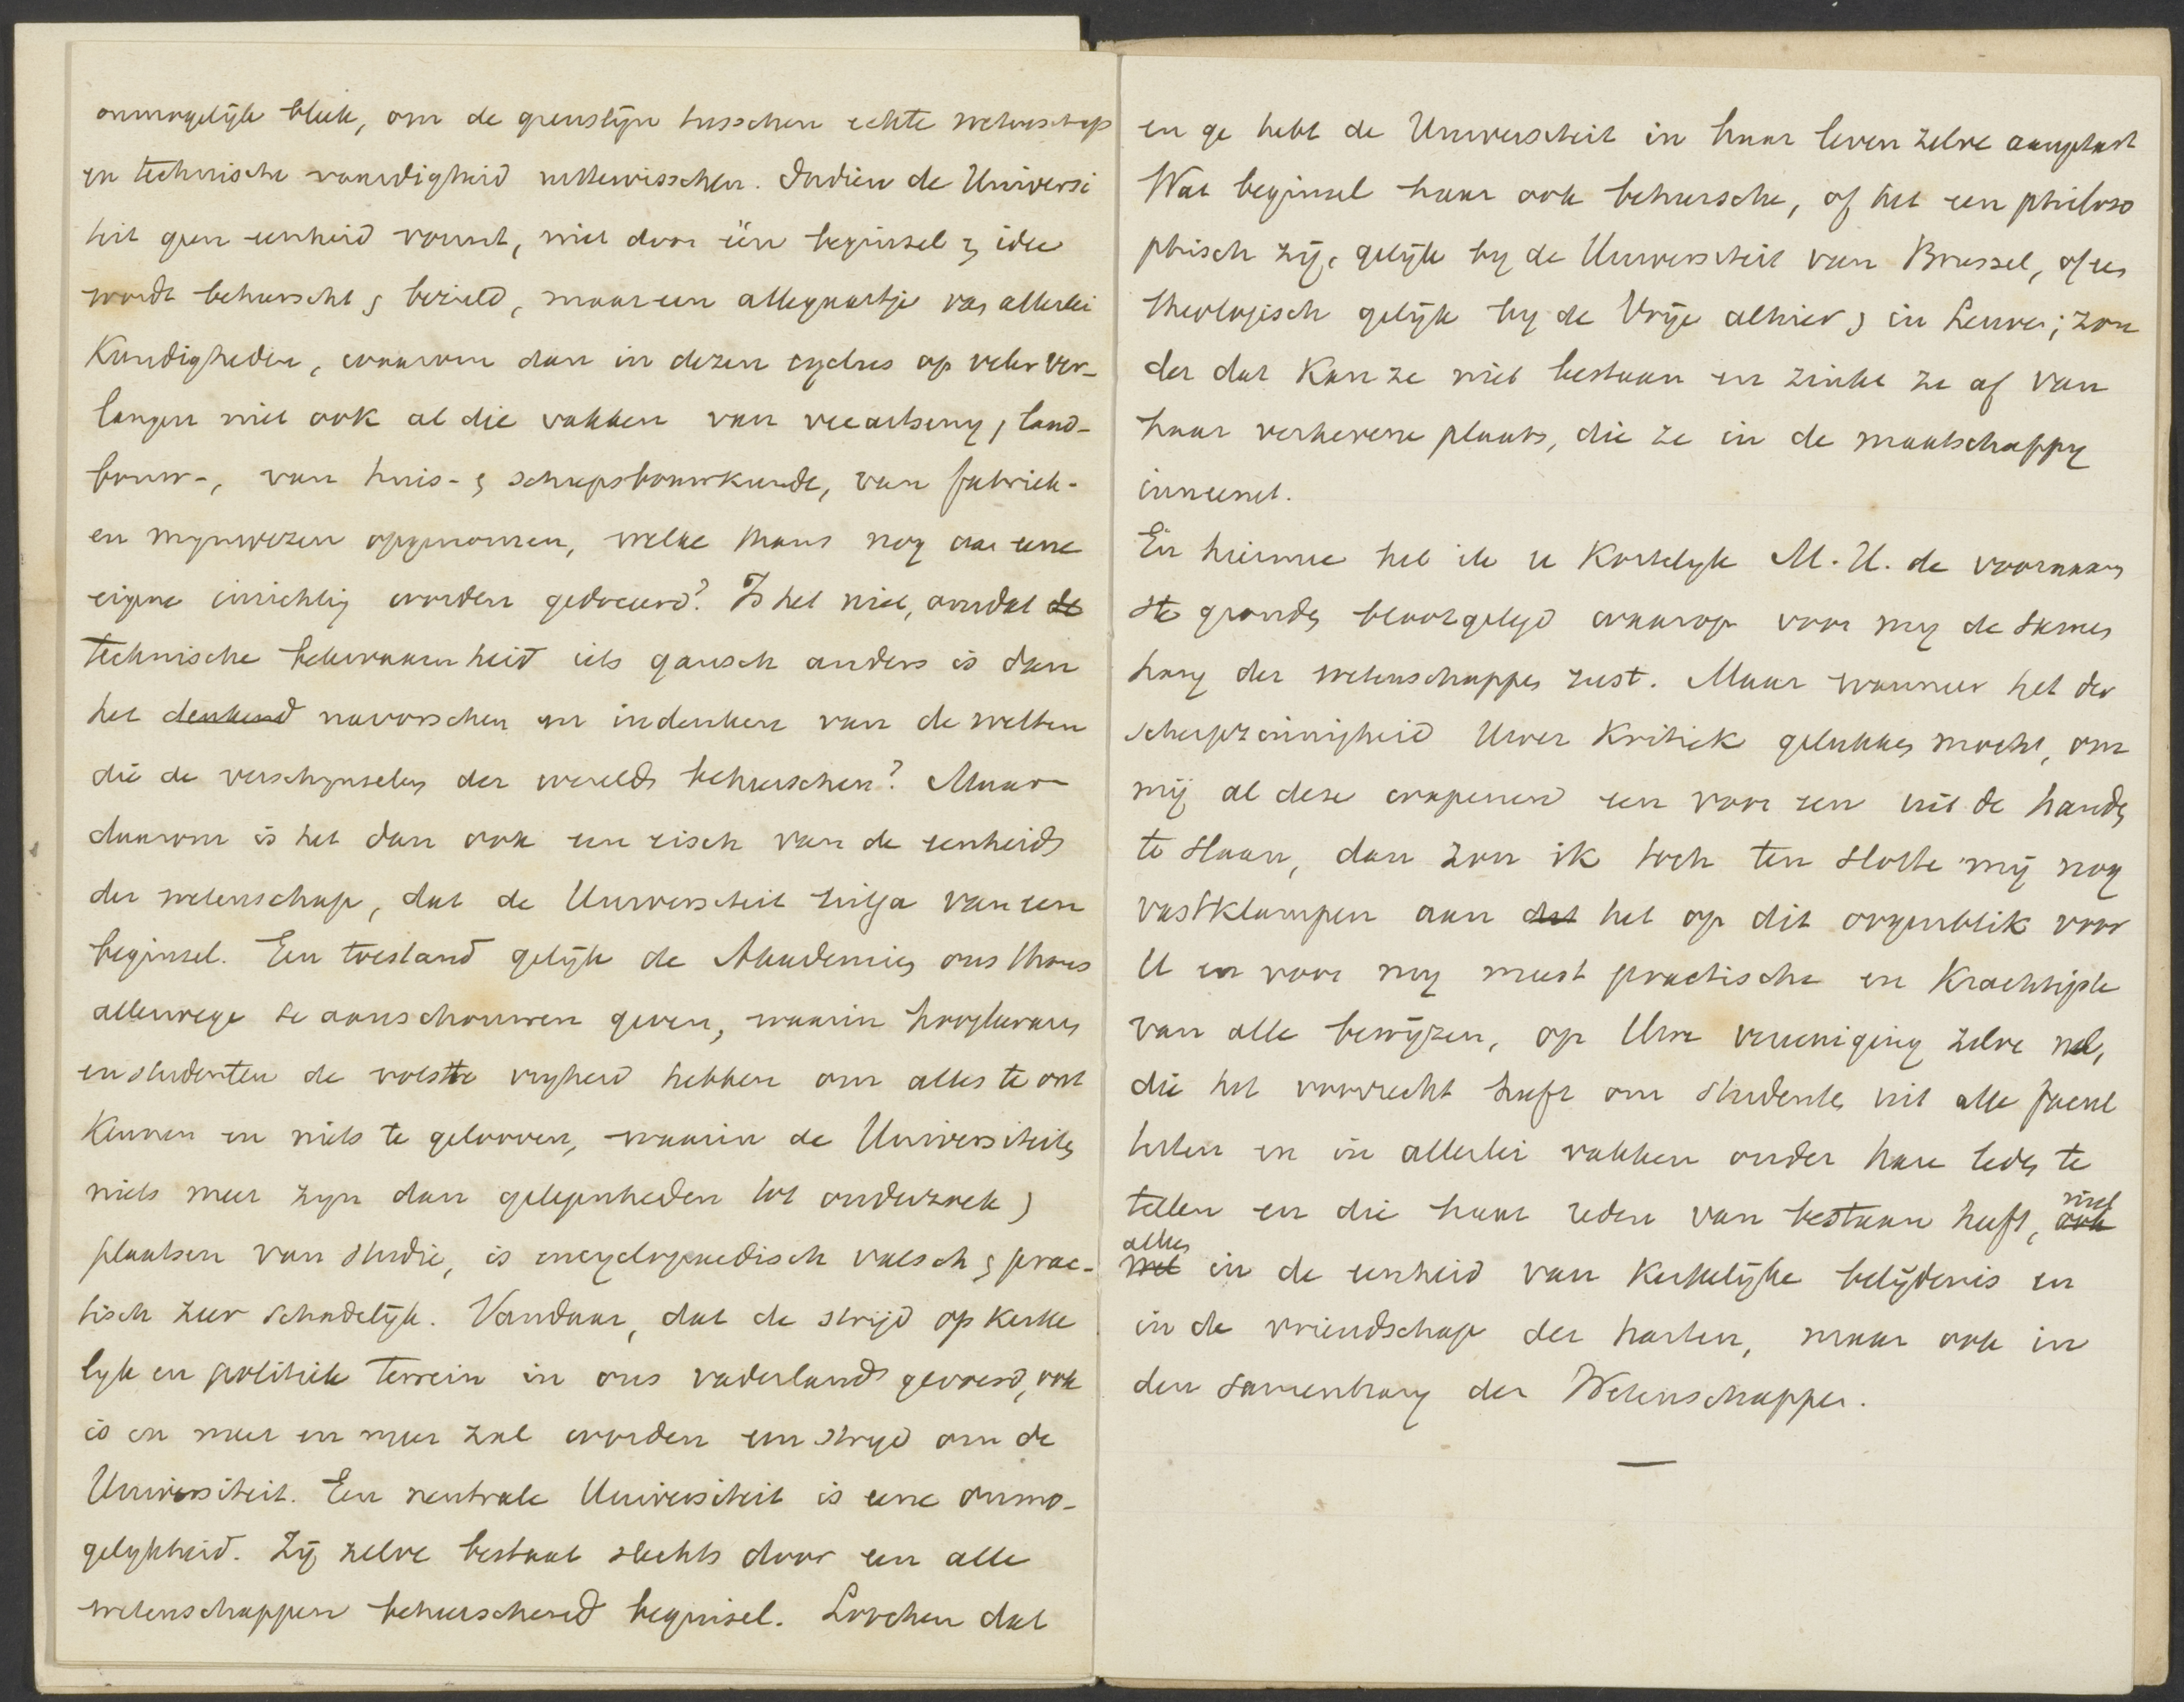 onmogelijk bleek, om de grenslijn tusschen echte wetenschap
en technische vaardigheid uittewisschen. Indien de Universi
teit geen eenheid vormt, niet door één beginsel & idee
wordt beheerscht & bezield, maar een allegaartje van allerlei
kundigheden, waarom dan in dezen cyclus op veler ver-
langen niet ook al die vakken van veeartseny, land-
bouw-, van huis- & scheepsbouwkunde, van fabriek-
en mynwezen opgenomen, welke thans nog aan eene
eigene inrichting worden gedoceerd? Is het niet, omdat de
technische bekwaamheid iets gansch anders is dan
het denkend navorschen en indenken van de wetten
die de verschynselen der wereld beheerschen? Maar
daarom is het dan ook een eisch van de eenheid
der wetenschap, dat de Universiteit uitga van een
beginsel. Een toestand gelijk de Akademies ons thans
allerwege te aanschouwen geven, waarin hoogleeraars
en studenten de volste vryheid hebben om alles te ont
kennen en niets te gelooven, waarin de Universiteiten
niets meer zyn dan gelegenheden tot onderzoek &
plaatsen van studie, is encyclopaedisch valsch & prac-
tisch zeer schadelijk. Vandaar, dat de strijd op kerke
lyk en politiek terrein in ons vaderland gevoerd, ook
is en meer en meer zal worden een stryd om de
Universiteit. Een neutrale Universiteit is eene onmo-
gelykheid. Zij zelve bestaat slechts door een alle
wetenschappen beheerschend beginsel. Loochen dat
en ge hebt de Universiteit in haar leven zelve aangetast
Wat beginsel haar ook beheersche, of het een philoso
phisch zij, gelijk by de Universiteit van Brussel, of een
theologisch gelijk by de Vrije alhier & in Leuven; zon
der dat kan ze niet bestaan en zinkt ze af van
haar verhevene plaats, die ze in de maatschappy
inneemt.
En hiermee heb ik u kortelyk M. H. de voornaam
ste gronden blootgelegd waarop voor my de samen
hang der wetenschappen rust. Maar wanneer het der
scherpzinnigheid Uwer kritiek gelukken mocht, om
mij al deze wapenen een voor een uit de handen
te slaan, dan zou ik toch ten slotte mij nog
vastklampen aan dat het op dit oogenblik voor
U en voor my meest practische en krachtigste
van alle bewijzen, op Uwe vereeniging zelve nl,
die het voorrecht heeft om studenten uit alle facul
teiten en in allerlei vakken onder hare leden te
tellen en die haar reden van bestaan heeft, ook niet
met alleen in de eenheid van kerkelijke belijdenis en
in de vriendschap der harten, maar ook in
den samenhang der Wetenschappen.